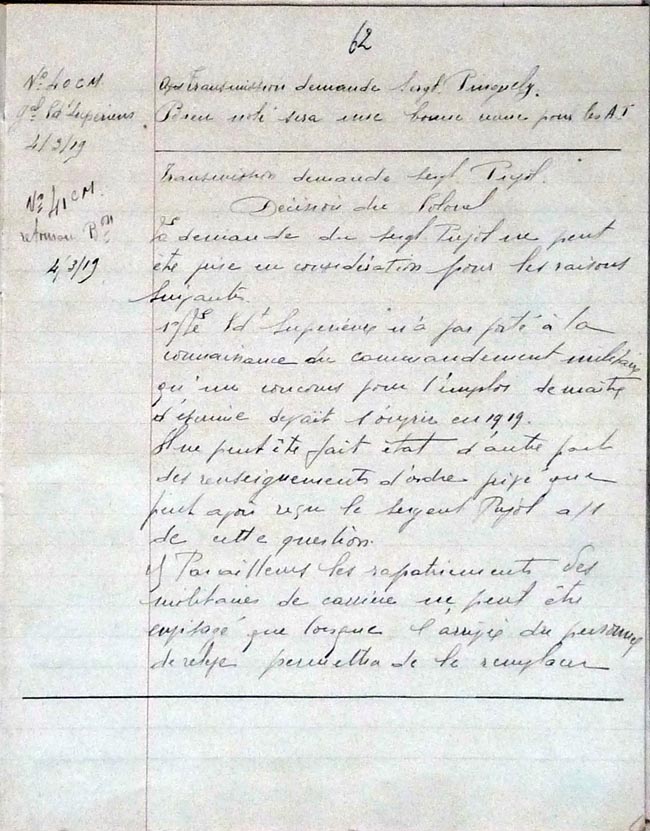 62
N° 40 CM.
Transmission demande Sergt. Pinguely.
Gal Cdt Supérieur
Bien noté sera une bonne pour les A.T
4/3/19
N° 41 CM.
Transmission demande Sergt. Pujol.
retenseur Bon
Décision du Colonel
4/3/19.
La demande du Sergt. Pujol ne peut
être prise en considération pour les raisons
suivantes.
1°/ Le Cdt Supérieur n'a pas porté à la
connaissance du commandement militaire
qu'un concours pour l'emploi de maître
d'escrime devait s'ouvrir en 1919.
Il ne peut être fait état d'autre part
des renseignements d'ordre privé que
peut avoir reçu le Sergent Pujol a/s
de cette question.
2/ Par ailleurs les rapatriements des
militaires de carrière ne peut être
envisagé que lorsque l'arrivée du personnel
de relève permettra de le remplacer